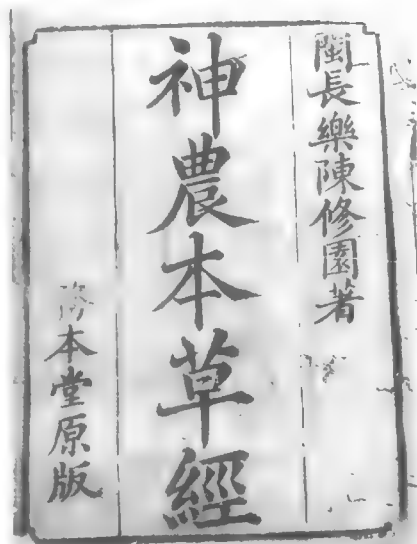 閩長樂陳修園著
神農本草經
本堂原版